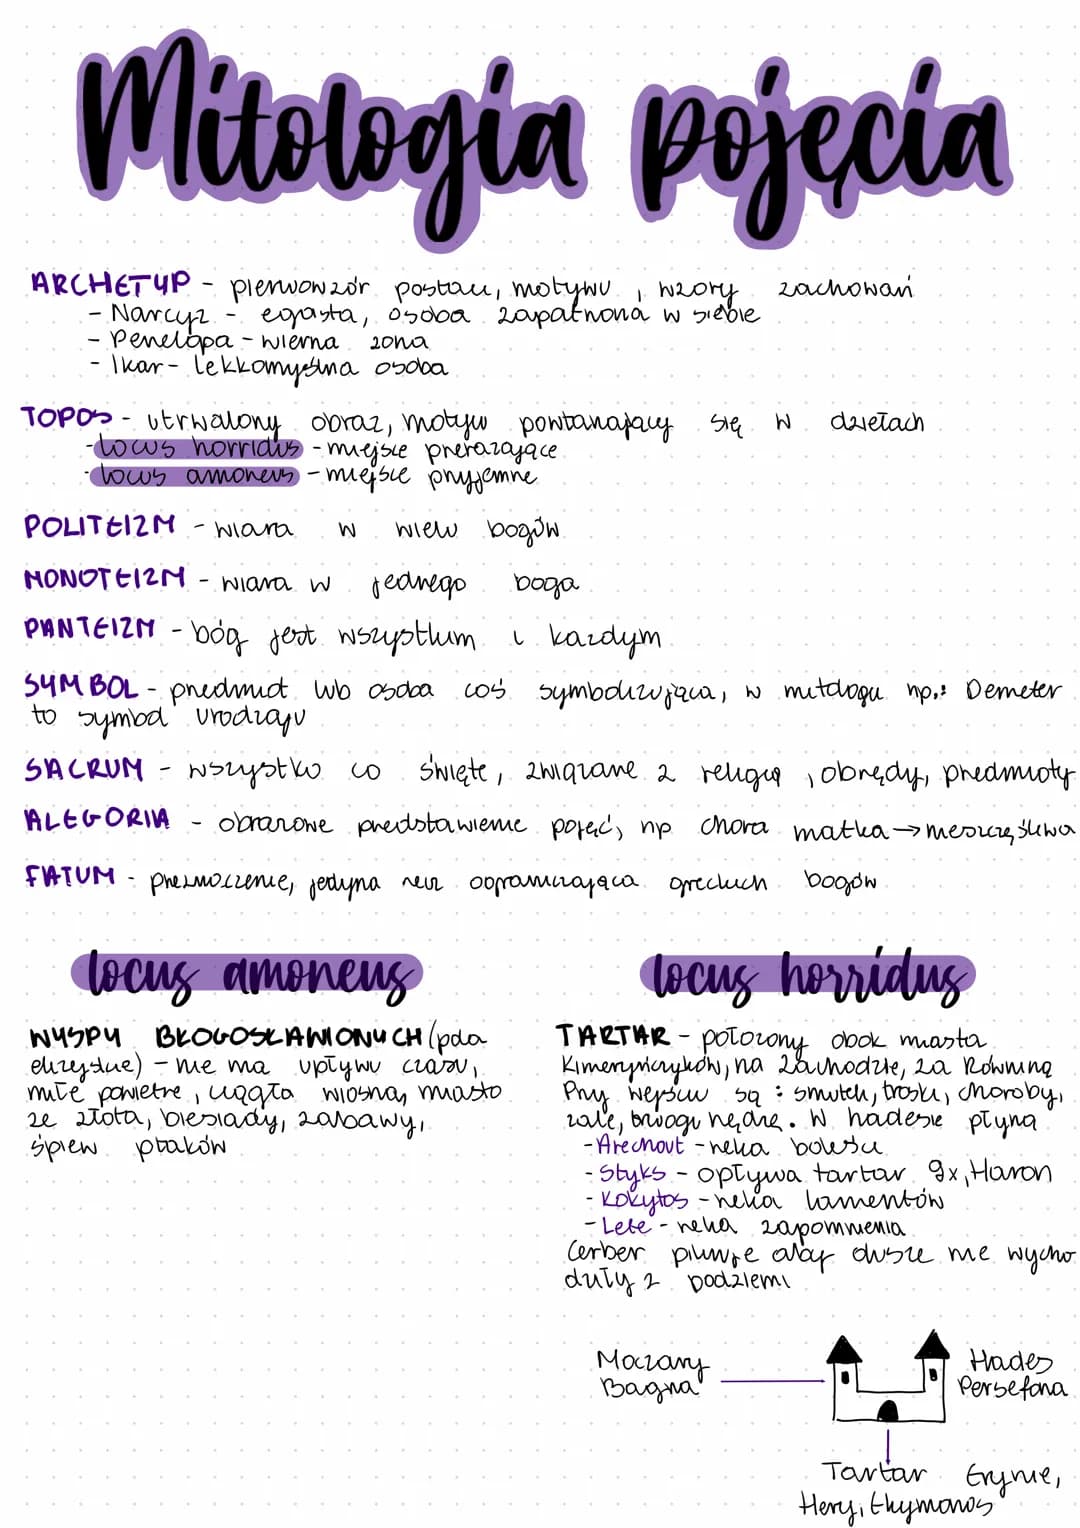 Mitologia pojęcia
ARCHETYP - pierwowzór postaci, motywu, wzory zachowań
- Narcyz - egoista, osoba zapatrzona w siebie
- Penelopa - wierna żona
- Ikar - lekkomyślna osoba
TOPOS - utrwalony obraz, motyw powtarzający się w dziełach
- locus horridus - miejsce przerażające
- locus amoneus - miejsce przyjemne
POLITEIZM - wiara w wielu bogów
MONOTEIZM - wiara w jednego boga
PANTEIZM - bóg jest wszystkim i każdym
SYMBOL - przedmiot lub osoba coś symbolizująca, w mitologii np.: Demeter
to symbol urodzaju
SACRUM - wszystko co święte, związane z religią, obrzędy, przedmioty
ALEGORIA - obrazowe przedstawienie pojęć, np chora matka → nieszczęśliwa
FATUM - przeznaczenie, jedyna rzecz ograniczająca greckich bogów
locus amoneus
WYSPY BŁOGOSŁAWIONYCH (pola
elizejskie) - nie ma upływu czasu,
miłe powietrze, ciągła wiosna, miasto
ze złota, biesiady, zabawy,
śpiew ptaków
locus horridus
TARTAR - położony obok miasta
na zachodzie, za Równiną
Przy wejściu są: smutek, troski, choroby,
żale, trwogi nędzę. W hadesie płyną
- Arechout - rzeka boleści
- Styks - opływa tartar 9x, Haron
- Kokytos - rzeka lamentów
- Lete - rzeka zapomnienia
Cerber pilnuje aby dusze nie wycho
dziły z podziemi
Moczary
Bagna
Hades
Persefona
Tartar Erynie,
Hery, Ehymonos